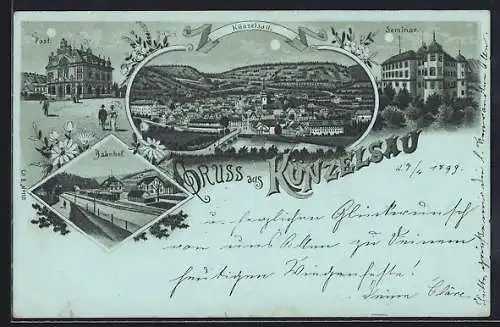 Künzelsau.
Post.
Seminar.
Bahnhof.
Gruss aus Künzelsau
29/4 1899.
u. herzlichen Glückwunsch
von uns Allen zu Deinem
heutigen Wiegenfeste!
Deine Cläre.